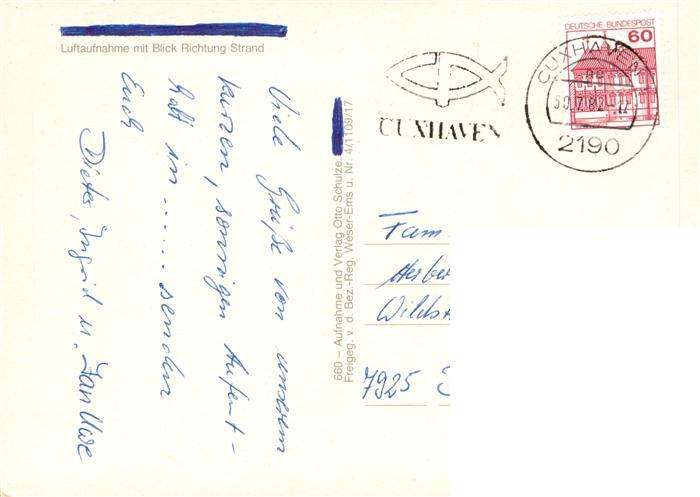 Luftaufnahme mit Blick Richtung Strand
Viele Grüße von unserem
kurzen, sonnigen Aufent-
halt in ...... senden
Euch
Dieter, Ingrid u. Jan Uwe
660 – Aufnahme und Verlag Otto Schulze,
Freigeg. v. d. Bez.-Reg. Weser-Ems u. Nr. 4/1109/17
CUXHAVEN
DEUTSCHE BUNDESPOST
60
CUXHAVEN
2190
Fam
Wilds
7925